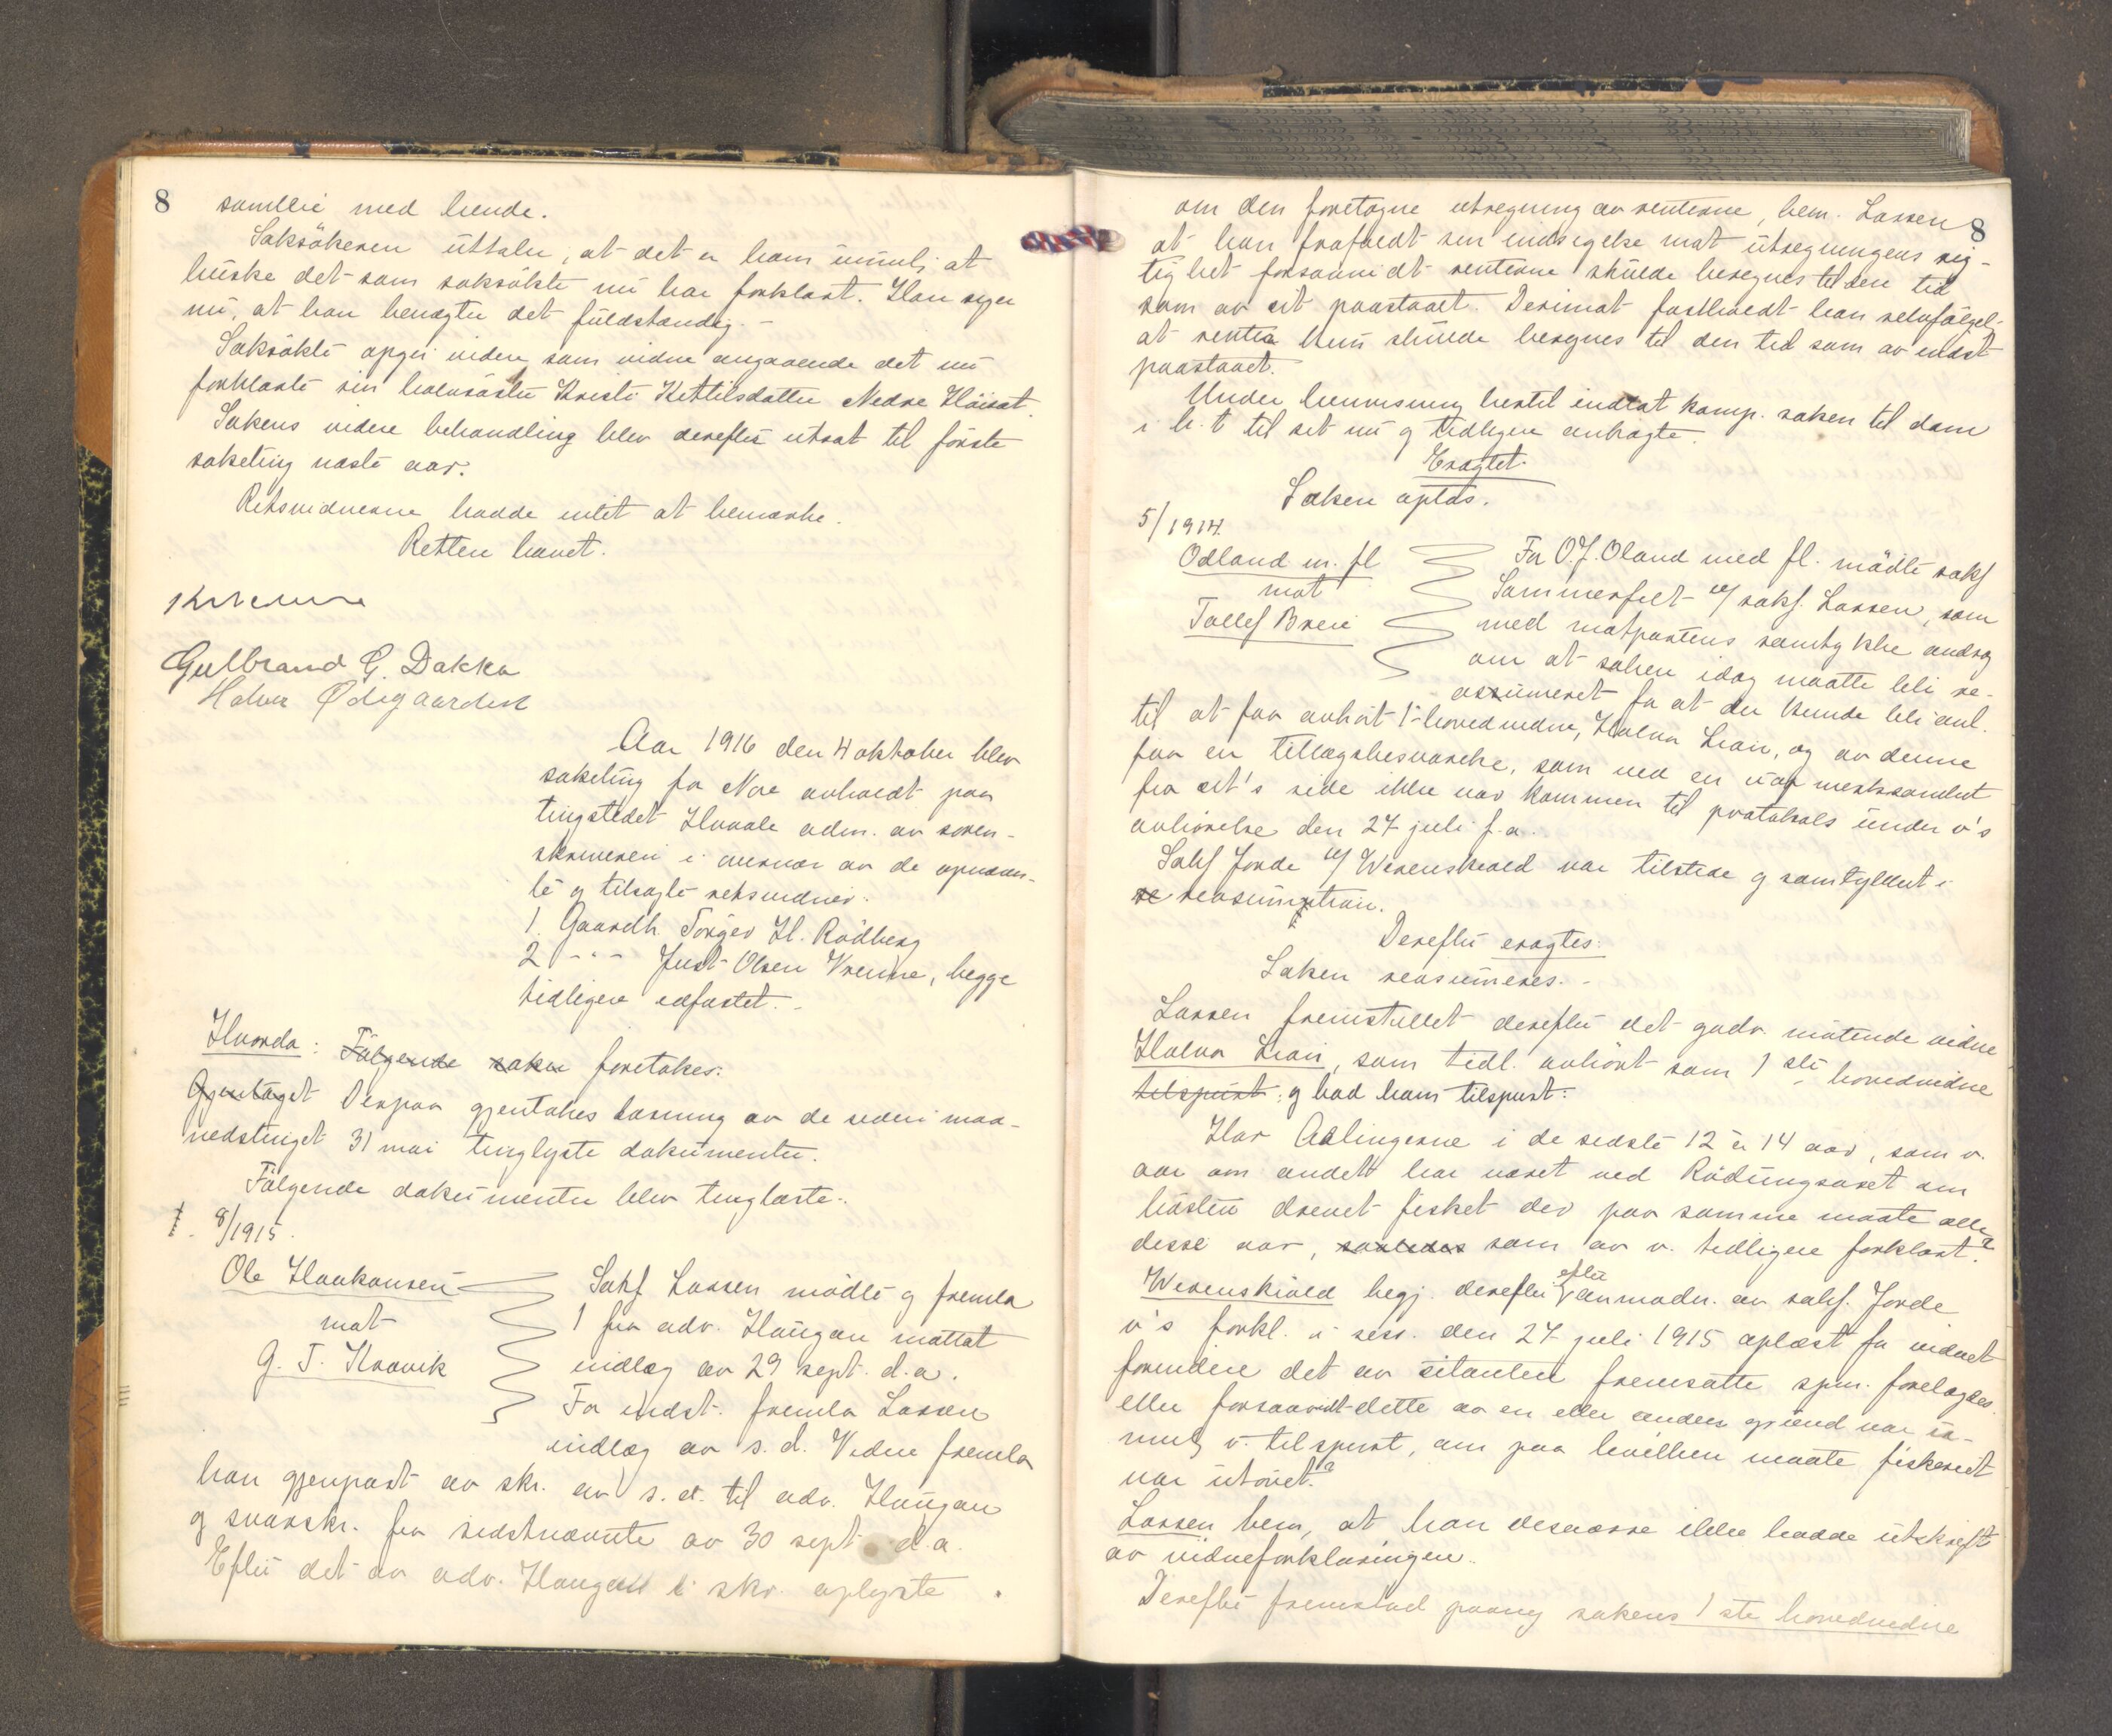 8
samleie med hende.
Saksökeren uttaler, at det er ham umulig at
huske det som saksökte nu har forklart. Han siger
nu, at han benegter det fuldstændig. -
Saksökte opgir videre som vidne angaaende det nu
forklarte sin halvsöster Kristi Kittilsdatter Nedre Höisæt.
Sakens videre behandling blev derefter utsat til förste
saketing næste aar.
Retsvidnerne hadde intet at bemerke.
Retten hævet.
Gulbrand G. Dokka
Halvor Ødegaarden
Aar 1916 den 4 oktober blev
saketing for Nore avholdt paa
tingstedet Hvaale adm. av soren-
skriveren i nærvær av de opnævn-
te og tilsagte retsvidner.
1. Gaardb. Torger H. Rödberg
2 - - - Just Olsen Vrenne, begge
tidligere edfæstet. -
Hvorda: Fölgende saker foretokes:
Gjentaget Derpaa gjentokes læsning av de siden maa-
nedstinget 31 mai tinglyste dokumenter.
Fölgende dokumenter blev tinglæste:
I. 8/1915.
Ole Haakonsen
mot
G. T. Kravik
Sakf Larsen mödte og fremla
1 fra adv. Haugan mottat
indlæg av 29 sept. d.a.
For indst. fremla Larsen
indlæg av s. d. Videre fremla
han gjenpart av skr. av s. d. til adv. Haugan
og svarskr. fra sidstnævnte av 30 sept d.a.
Efter det av adv. Haugan i skr. oplyste
8
om den foretagne utregning av renterne, bem. Larsen
at han frafaldt sin indsigelse mot utregningens rig-
tighet forsaavidt renterne skulde beregnes til den tid
som av cit paastaaet. Derimot fastholdt han selvfölgelig
at renter kun skulde beregnes til den tid som av indst
paastaaet.
Under henvisning hertil indlot komp. saken til dom
i h. t til sit nu og tidligere anbragte.
Eragtet.
Saken optas.
5/1914.
Odland m. fl
mot
Tollef Breie
For O. J. Oland med fl. mödte sakf
Sommerfelt v/ sakf. Larsen, som
med motpartens samtykke androg
om at saken idag maatte bli re-
assumeret for at der kunde bli anl.
til at faa avhört 1ste hovedvidne, Halvor Lien, og av denne
faa en tillægsbesvarelse, som ved en uopmerksomhet
fra cit's side ikke var kommen til protokols under v's
avhörelse den 27 juli f. a.
Sakf Jorde v/ Werenskiold var tilstede og samtykket i
re reasumption.
Derefter eragtes:
Saken reasumeres. -
Larsen fremstillet derefter det godv. mötende vidne
Halvor Lien, som tidl. avhört som 1 ste hovedvidne
tilspurt: og bad ham tilspurt:
Har Aalingerne i de sidste 12 à 14 aar, som v.
aar om andet har været ved Rödungsoset om
hösten drevet fisket der paa samme maate alle
disse aar, saaledes som av v. tidligere forklart?
Werenskiold begj. derefter efter anmodn. av sakf. Jorde
v's forkl. i sess. den 27 juli 1915 oplæst for vidnet
forinden det av citanten fremsatte spm. forelægges
eller forsaavidt dette av en eller anden grund var u-
mulig v. tilspurt, om paa hvilken maate fiskeriet
var utövet?
Larsen bem, at han desværre ikke hadde utskrift
av vidneforklaringen.
Derefter fremstod paany sakens 1 ste hovedvidne